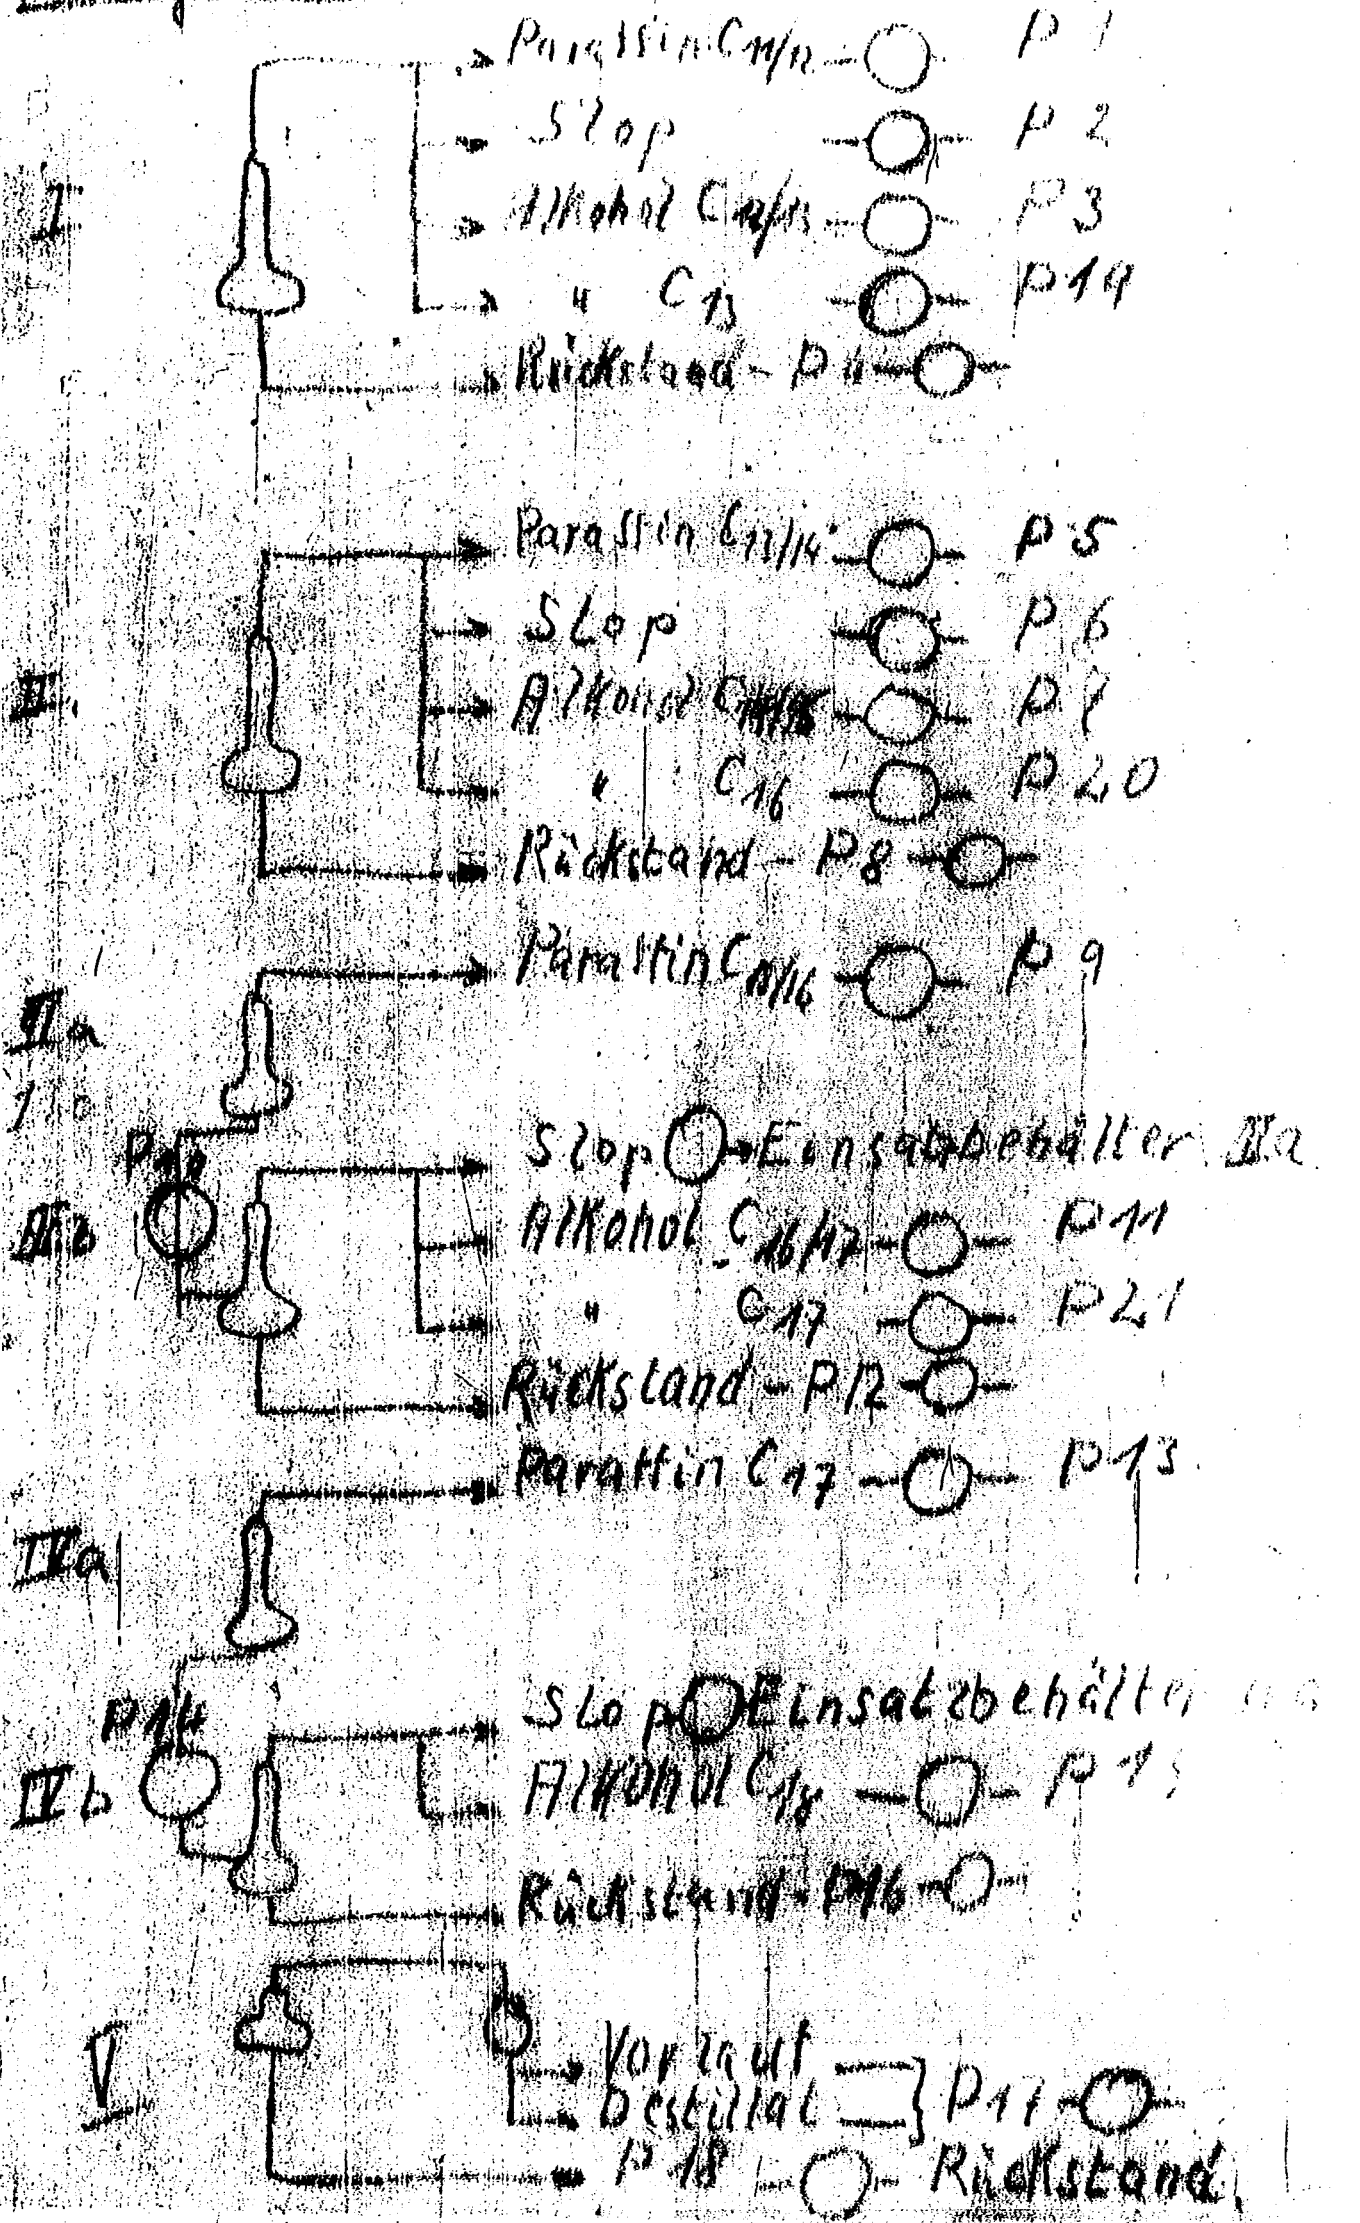 Paraffin C 11/12 P 1
Slop P 2
I
Alkohol C 12/13 P 3
" C 13 P 19
Rückstand - P 4
Paraffin C 13/14 P 5
Slop P 6
II.
Alkohol P 7
" C 16 P 20
Rückstand - P 8
Paraffin C 15/16 P 9
IIIa
P 10
Slop Einsatzbehälter IIIa
IIIb
Alkohol C 16/17 P 11
" C 17 P 21
Rückstand - P 12
Paraffin C 17 P 13
IVa
P 14
Slop Einsatzbehälter
IVb
Alkohol C 18 P 15
Rückstand - P 16
V
Vorlauf
Destillat P 17
P 18 Rückstand